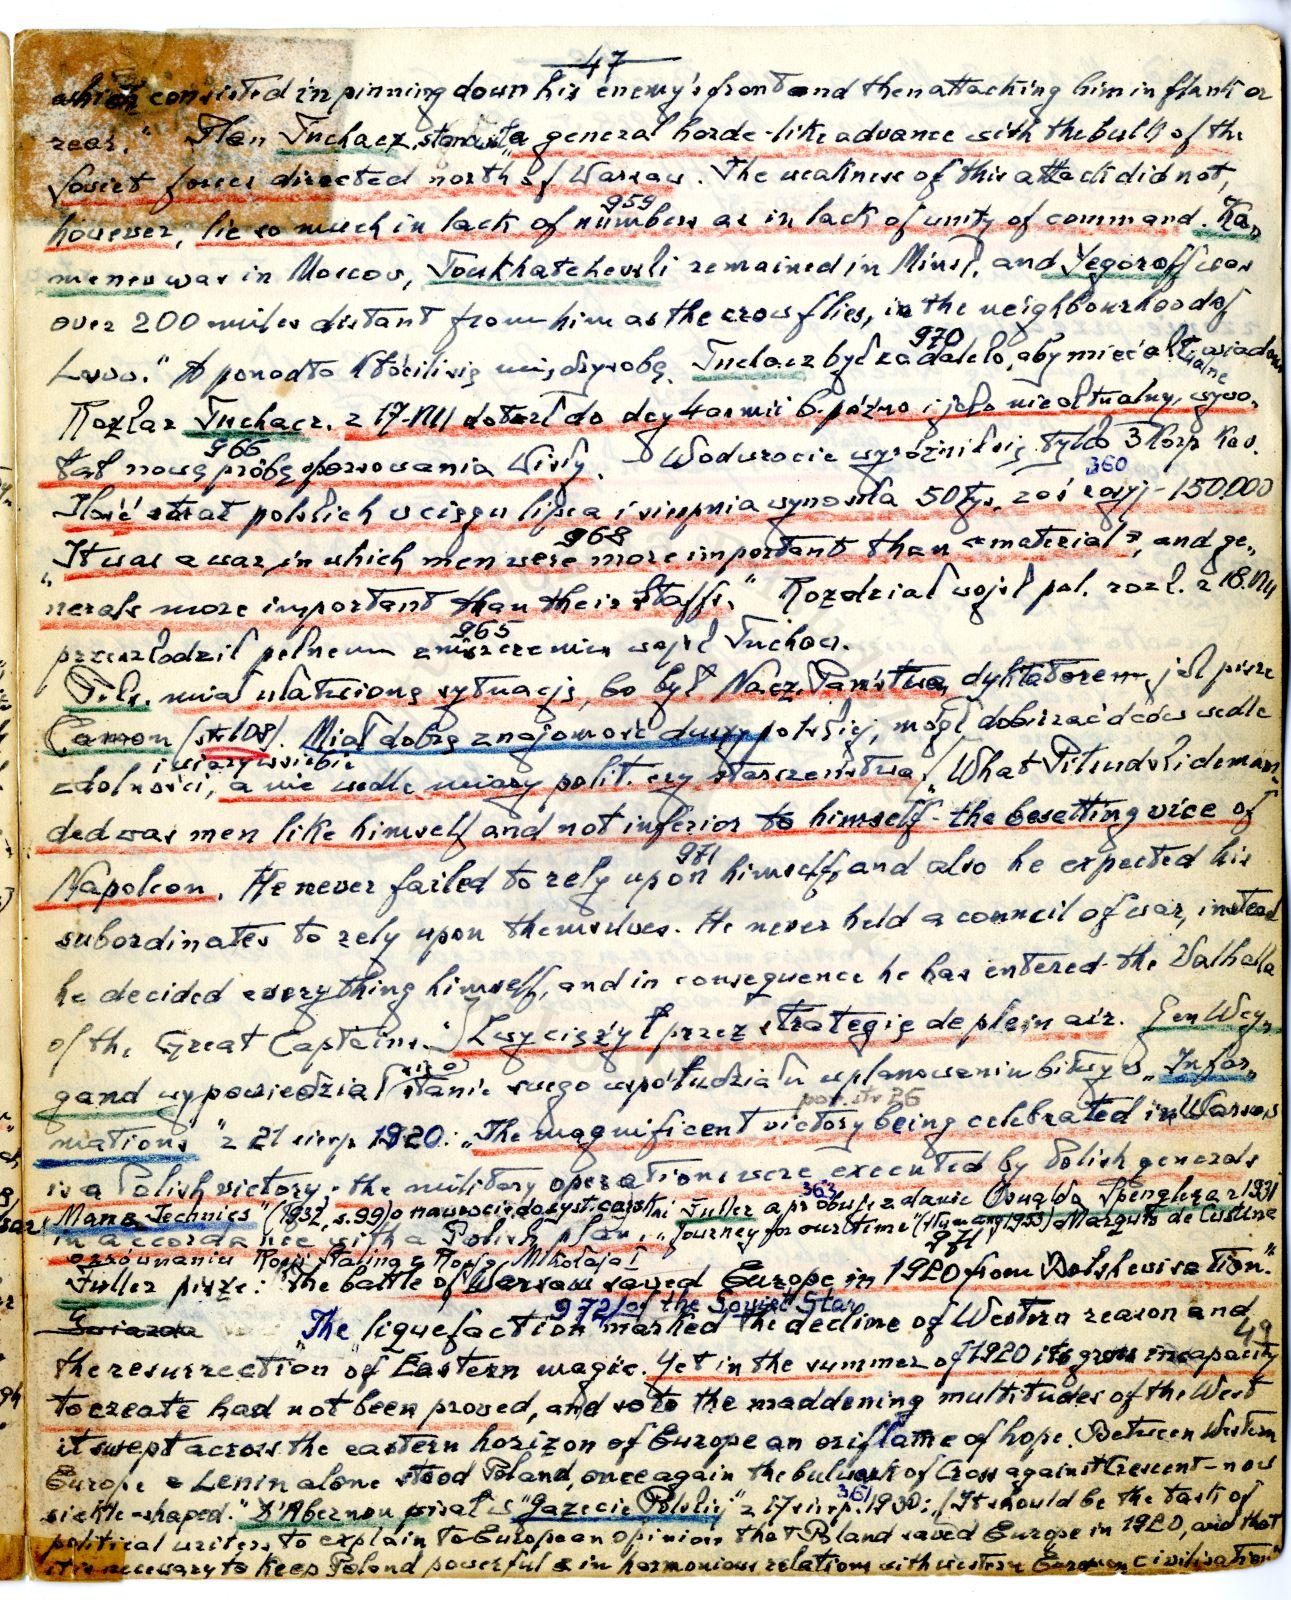 47
which consisted in pinning down his enemy's front and then attacking him in flank or
rear." Plan Tuchacz. stanowił „a general horde-like advance with the bulk of the
Soviet forces directed north of Warsaw. The weakness of this attack did not,
959
however, lie so much in lack of numbers as in lack of unity of command. Ka„
menev was in Moscow, Toukhatchevski remained in Minsk, and Yegoroff was
over 200 miles distant from him as the crow flies, in the neighbourhood of
970
Lwow." A ponadto kłócili się między sobą. Tuchacz był za daleko, aby mieć aktualne wiadom.
Rozkaz Tuchacz. z 17.VIII dotarł do dcy 4 armii b. późno i jako nieaktualny, wywo„
966
łał nową próbę sforsowania Wisły. - W odwrocie wyróżnił się tylko 3 Korp Kaw.
360
Ilość strat polskich w ciągu lipca i sierpnia wynosiła 50 tys, zaś rosyj - 150.000
968
„It was a war, in which men were more important than "material", and ge„
nerals more important than their staffs." Rozdział wojsk pol. rozk. z 18.VIII
965
przeszkodził pełnemu zniszczeniu wojsk Tuchacz.
Piłs. miał ułatwioną sytuację, bo był Nacz. Państwa, dyktatorem, jak pisze
Camon (str 108). Miał dobrą znajomość duszy polskiej, mógł dobierać dców wedle
i wiary w siebie
zdolności, a nie wedle miary polit. czy starszeństwa. „What Pilsudski deman„
ded was men like himself and not inferior to himself - the besetting vice of
971
Napoleon. He never failed to rely upon himself, and also he expected his
subordinates to rely upon themselves. He never held a council of war, instead
he decided everything himself, and in consequence he has entered the Valhalla
of the Great Captains." Zwyciężył przez strategię de plein air. Gen Wey„
gand wypowiedział się o stanie swego współudziału w planowaniu bitwy w „Infor„
por. str 26
mations" z 21 sierp 1920: „The magnificent victory being celebrated in Warsaw
is a Polish victory; the military operations were executed by Polish generals
363
Man & Technics" (1932, s.99) o nawrocie do syst. carskiej Fuller a próbuje zdanie Oswalda Spenglera z 1931
in accordance with a Polish plan. „Journey for our time" (1953) Marquis de Custine
971
o zrównaniu Rosji Stalina z Rosją Mikołaja I
Fuller pisze: "The battle of Warsaw saved Europe in 1920 from Bolshevisation."
972/of the Soviet Star
Gwiazda The "liquefaction" marked the decline of Western reason and
49
the resurrection "of Eastern magic. Yet in the summer of 1920 its gross incapacity
to create had not been proved, and so to the maddening multitudes of the West
it swept across the eastern horizon of Europe an oriflame of hope. Between Western
Europe & Lenin alone stood Poland, once again the bulwark of Cross against Crescent - now
361
sickle-shaped." D'Abernon pisał w "Gazecie Polskiej" z 17 sierp. 1930: „It should be the task of
political writers to explain to European opinion that Poland saved Europe in 1920, and that
it is necessary to keep Poland powerful & in harmonious relations with western European civilisation"